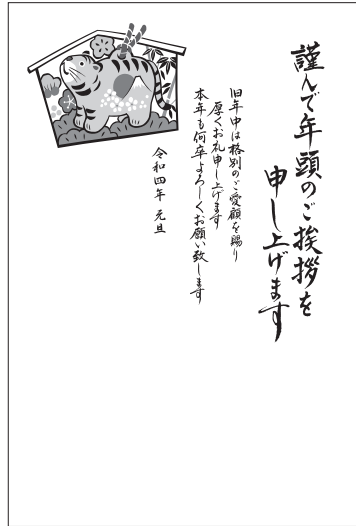 謹んで年頭のご挨拶を
申し上げます
旧年中は格別のご愛顧を賜り
厚くお礼申し上げます
本年も何卒よろしくお願い致します
令和四年 元旦